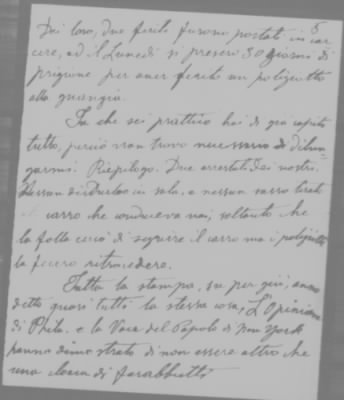 5
Dei loro, due feriti furono portati in car
cere, ed il Lunedì si presero 30 giorni di
prigione per aver ferito un poliziotto
alla guangia.
Tu che sei prattico hai di già saputo
tutto, perciò non trovo necessario di dilun
garmi. Riepilogo. Due arrestati dei nostri.
Nessun disturbo in sala, e nessun sasso tirato
carro che conduceva noi, soltanto che
la folla cercò di seguire il carro ma i poliziotti
la fecero retrocedere.
Tutta la stampa, su per giù, anno
detto quasi tutti la stessa cosa, L'Opinione
di Phila. e la Voce del Popolo di New York
hanno dimostrato di non essere altro che
una cloaca di farabbutti